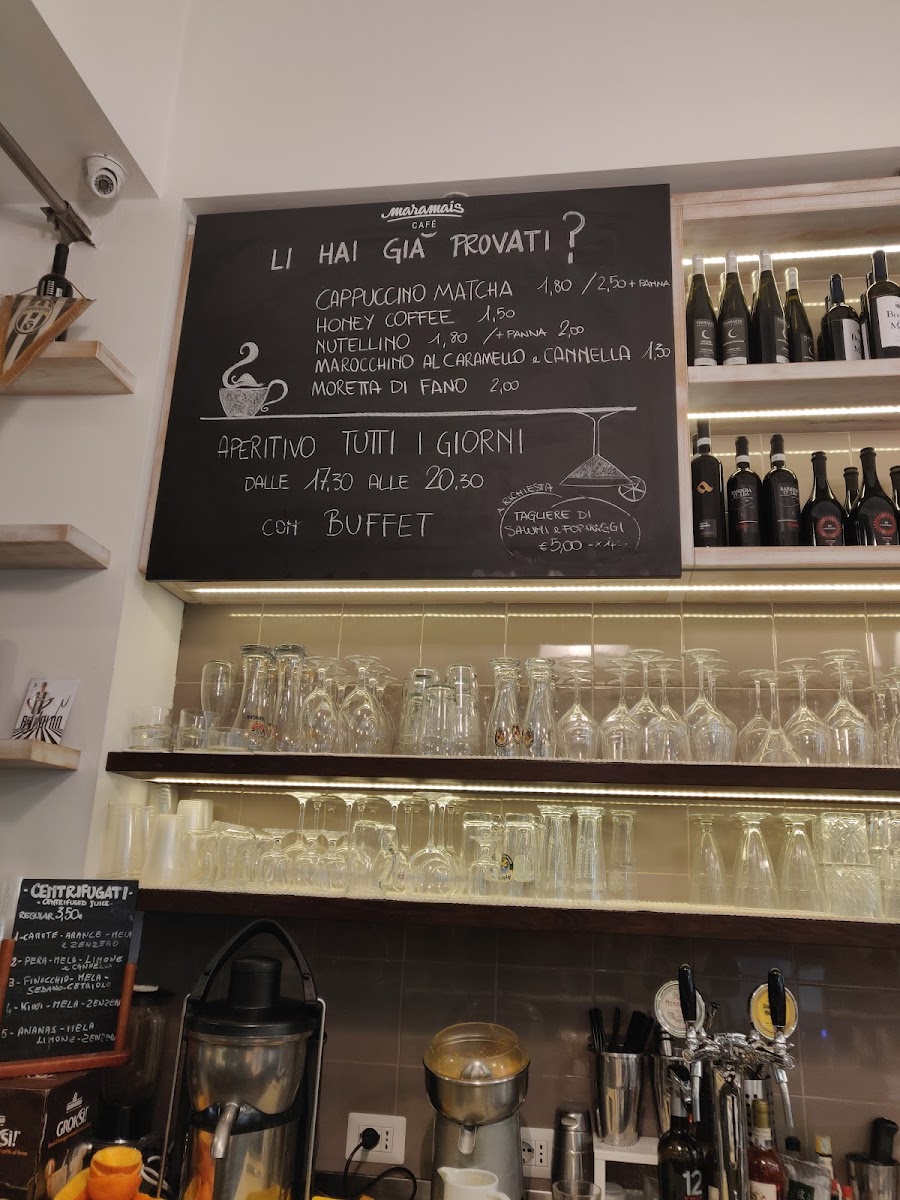 maramais
CAFÈ
LI HAI GIÀ PROVATI?
CAPPUCCINO MATCHA 1,80 / 2,50 + PANNA
HONEY COFFEE 1,50
NUTELLINO 1,80 / + PANNA 2,00
MAROCCHINO AL CARAMELLO e CANNELLA 1,30
MORETTA DI FANO 2,00
APERITIVO TUTTI I GIORNI
DALLE 17,30 ALLE 20.30
con BUFFET
A RICHIESTA
TAGLIERE DI
SALUMI e FORMAGGI
€ 5,00
- CENTRIFUGATI -
- CENTRIFUGED JUICE -
REGULAR 3,50€
1-CAROTE-ARANCE-MELA
e ZENZERO
2-PERA-MELA-LIMONE
e CANNELLA
3-FINOCCHIO-MELA-
SEDANO-CETRIOLO
4-KIWI-MELA-ZENZER
5-ANANAS-MELA
LIMONE-ZENZER
GROKSì!
12